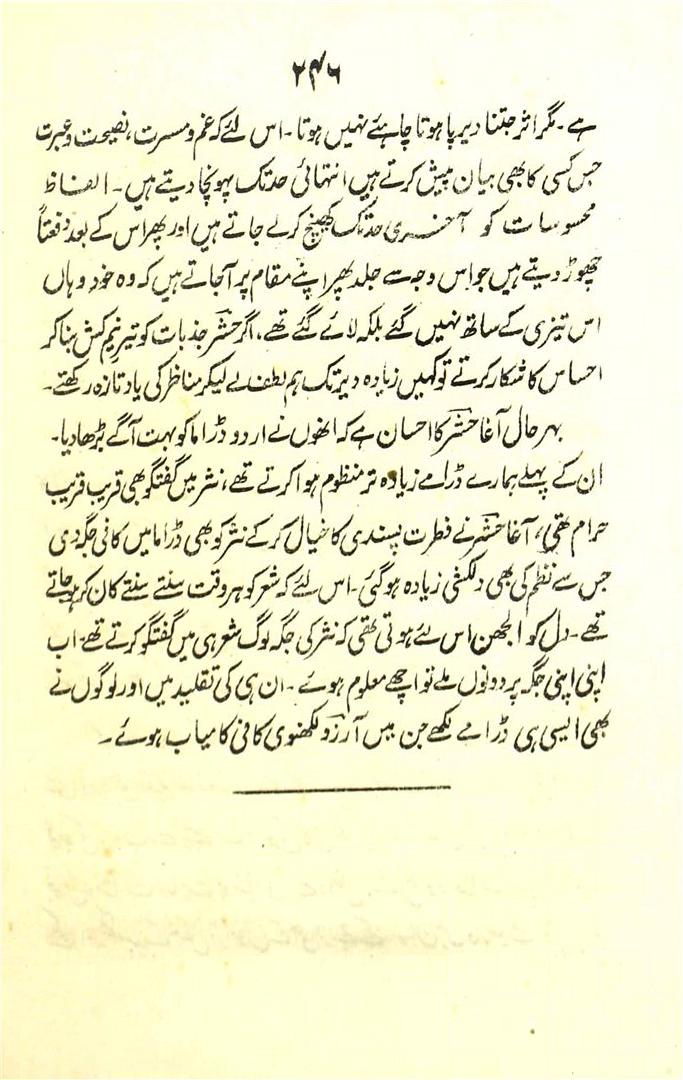 ۲۴۶
ہے۔ مگر اثر جتنا دیر پا ہوتا چاہئے نہیں ہوتا۔ اس لئے کہ غم و مسرت، نصیحت و عبرت
جس کسی کا بھی بیان پیش کرتے ہیں انتہائی حد تک پہونچا دیتے ہیں۔ الفاظ
محسوسات کو آخری حد تک کھینچ کر لے جاتے ہیں اور پھر اس کے بعد دفعتاً
چھوڑ دیتے ہیں جو اس وجہ سے جلد پھر اپنے مقام پر آجاتے ہیں کہ وہ خود وہاں
اس تیزی کے ساتھ نہیں گئے بلکہ لائے گئے تھے، اگر حشر جذبات کو تیرِ نیم کش بنا کر
احساس کا شکار کرتے تو کہیں زیادہ دیر تک ہم لطف لے لیکر مناظر کی یاد تازہ رکھتے۔
بہر حال آغا حشر کا احسان ہے کہ انھوں نے اردو ڈراما کو بہت آگے بڑھا دیا۔
ان کے پہلے ہمارے ڈرامے زیادہ تر منظوم ہوا کرتے تھے، نثر میں گفتگو بھی قریب قریب
حرام تھی، آغا حشر نے فطرت پسندی کا خیال کر کے نثر کو بھی ڈراما میں کافی جگہ دی
جس سے نظم کی بھی دلکشی زیادہ ہو گئی۔ اس لئے کہ شعر کو ہر وقت سنتے سنتے کان کریہہ جاتے
تھے۔ دل کو الجھن اس لئے ہوتی تھی کہ نثر کی جگہ لوگ شعر ہی میں گفتگو کرتے تھے۔ اب
اپنی اپنی جگہ پر دونوں ملے تو اچھے معلوم ہوئے۔ ان ہی کی تقلید میں اور لوگوں نے
بھی ایسی ہی ڈرامے لکھے جن میں آرزو لکھنوی کافی کامیاب ہوئے۔